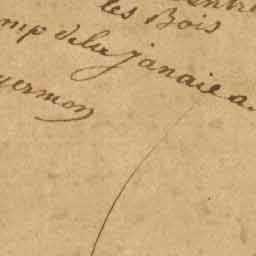 entr
les Bois
mp de la janaie a
yermon